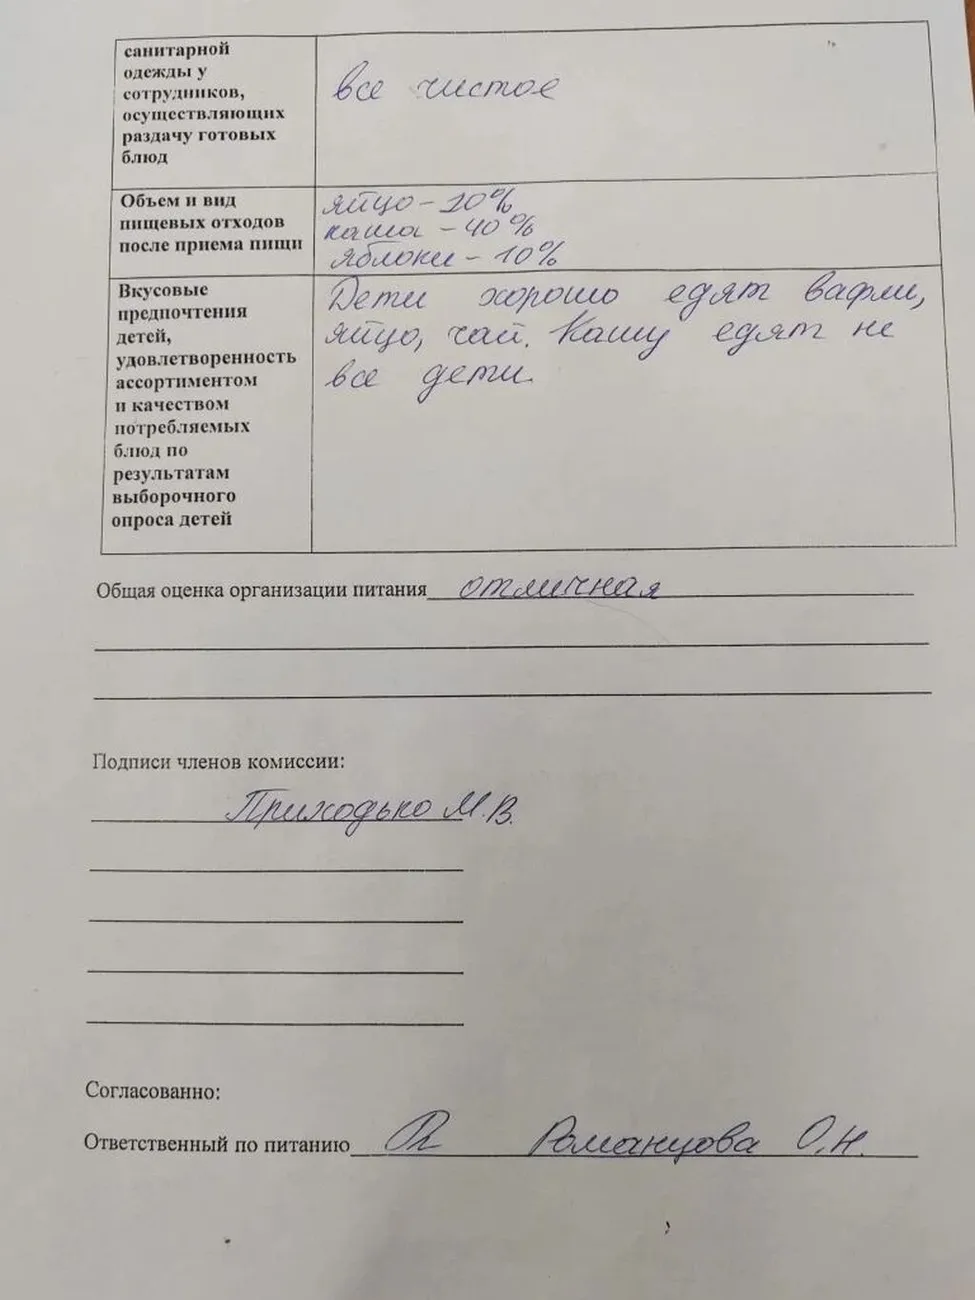 санитарной
одежды у
сотрудников,
осуществляющих
раздачу готовых
блюд
все чистое
Объем и вид
пищевых отходов
после приема пищи
яйцо - 20%
каша - 40%
яблоки - 10%
Вкусовые
предпочтения
детей,
удовлетворенность
ассортиментом
и качеством
потребляемых
блюд по
результатам
выборочного
опроса детей
Дети хорошо едят вафли,
яйцо, чай. Кашу едят не
все дети.
Общая оценка организации питания отличная
Подписи членов комиссии:
Приходько М.В.
Согласованно:
Ответственный по питанию Романцова О.Н.